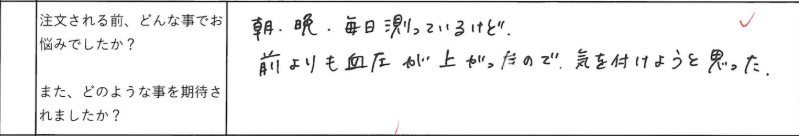 注文される前、どんな事でお
悩みでしたか？
また、どのような事を期待さ
れましたか？
朝．晩．毎日測っているけど．
前よりも血圧が上がったので．気を付けようと思った．